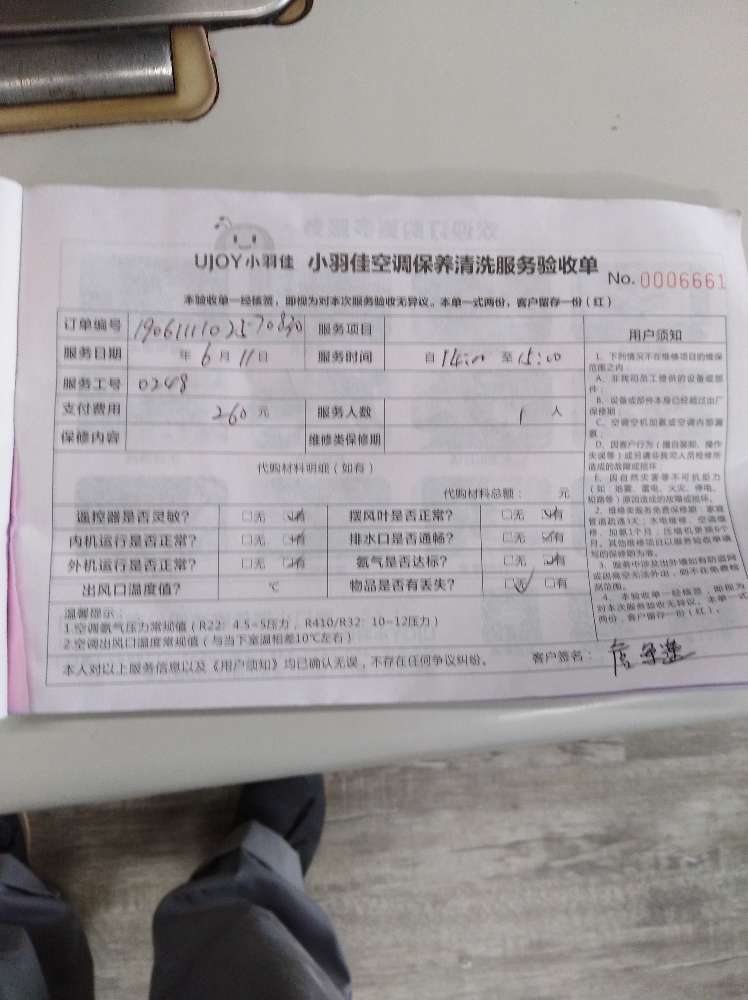 UJOY小羽佳 小羽佳空调保养清洗服务验收单 No. 0006661
本验收单一经核签，即视为对本次服务验收无异议。本单一式两份，客户留存一份（红）
订单编号 服务项目
服务日期 年 6 月 11 日 服务时间 自 14:00 至 15:00
服务工号 0248
支付费用 260 元 服务人数 1 人
保修内容 维修类保修期
代购材料明细（如有）
代购材料总额： 元
遥控器是否灵敏？ □无 □有 摆风叶是否正常？ □无 □有
内机运行是否正常？ □无 □有 排水口是否通畅？ □无 □有
外机运行是否正常？ □无 □有 氨气是否达标？ □无 □有
出风口温度值？ ℃ 物品是否有丢失？ □无 □有
温馨提示：
1.空调氨气压力常规值（R22：4.5-5压力，R410/R32：10-12压力）
2.空调出风口温度常规值（与当下室温相差10℃左右）
本人对以上服务信息以及《用户须知》均已确认无误，不存在任何争议纠纷。 客户签名：
用户须知
1、下列情况不在维修项目的维保
范围之内：
A、非我司员工提供的设备或部
件；
B、设备或部件本身已经超过出厂
保修期；
C、空调空机加氨或空调内部漏
氨；
D、因客户行为（擅自装卸、操作
失误等）或另请非我司人员检修所
造成的故障或损坏；
E、因自然灾害等不可抗能力
（如：地震、雷电、火灾、停电、
短路等）原因造成的故障或损坏。
2、维修类服务免费保修期：家庭
管道疏通1天；水电维修、空调维
修、加氨1个月；压缩机更换6个
月。其他维修项目以服务验收单填
写的保修期为准。
3、服务中涉及出外墙如有防盗网
或因高空无法外出，则不在免费检
测范围。
4、本验收单一经核签，即视为
对本次服务验收无异议。本单一式
两份，客户留存一份（红）。